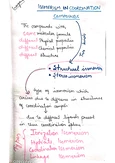 ISOMERISM IN COORDINATION
COMPOUNDS
The compounds with
same molecular formula
different physical properties
different chemical properties
different structure
Structural isomerism
Stereo isomerism
type of isomerism which
arises due to difference in structures
of coordination compounds
due to different ligands present
in their coordination sphere
Ionisation Isomerism
Hydrate Isomerism
Coordination Isomerism
Linkage Isomerism